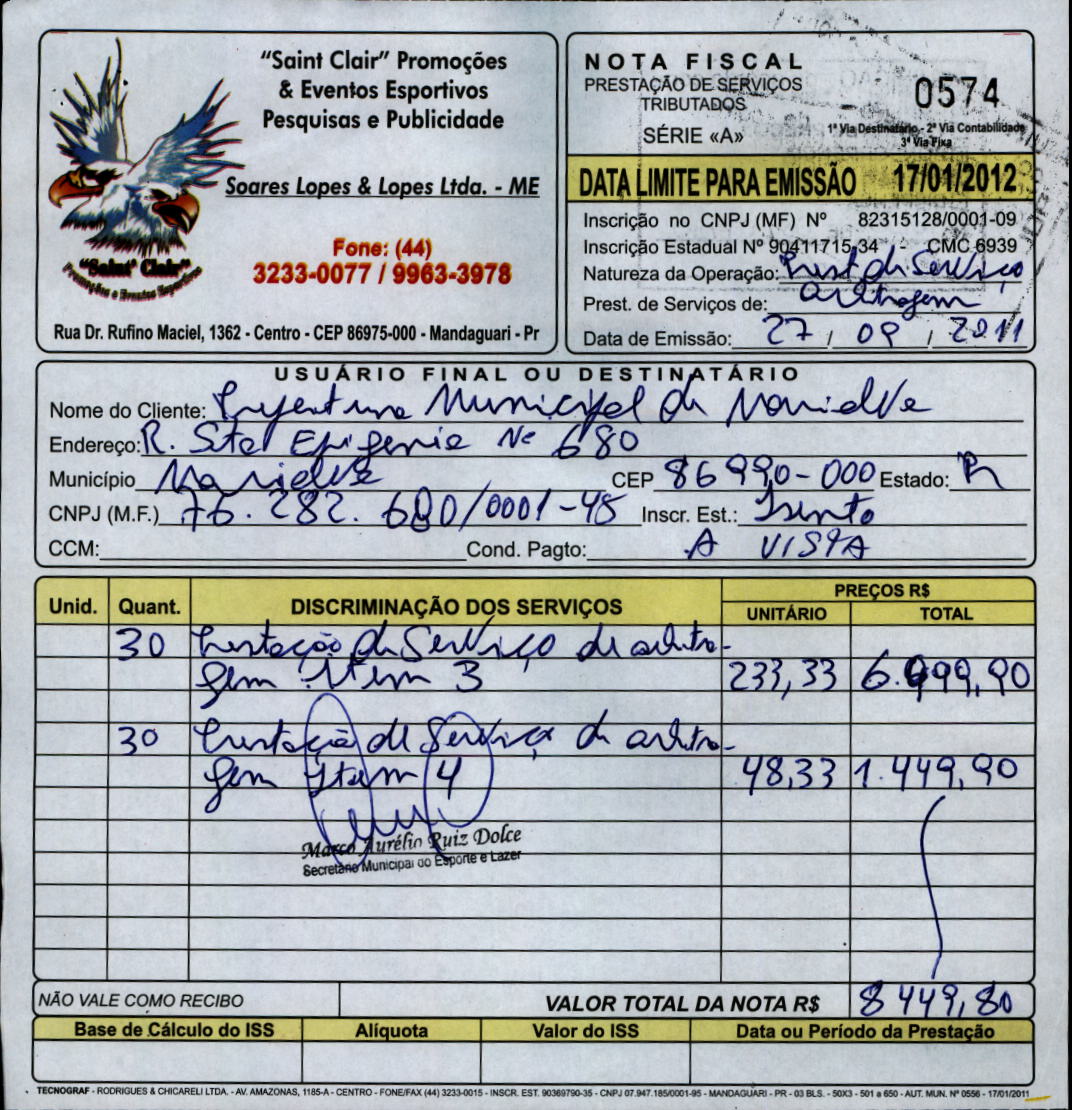 "Saint Clair" Promoções
& Eventos Esportivos
Pesquisas e Publicidade
Soares Lopes & Lopes Ltda. - ME
Fone: (44)
3233-0077 / 9963-3978
"Saint' Clair"
Promoções e Eventos Esportivos
Rua Dr. Rufino Maciel, 1362 - Centro - CEP 86975-000 - Mandaguari - Pr
NOTA FISCAL
PRESTAÇÃO DE SERVIÇOS
TRIBUTADOS
SÉRIE «A»
0574
1ª Via Destinatário - 2ª Via Contabilidade
3ª Via Fixa
DATA LIMITE PARA EMISSÃO 17/01/2012
Inscrição no CNPJ (MF) Nº 82315128/0001-09
Inscrição Estadual Nº 90411715-34 - CMC 6939
Natureza da Operação: Prest de Serviço
Prest. de Serviços de: arbitragem
Data de Emissão: 27 / 09 / 2011
USUÁRIO FINAL OU DESTINATÁRIO
Nome do Cliente: Prefeitura Municipal de Marialva
Endereço: R. Sta Efigenia Nº 680
Município Marialva CEP 86990-000 Estado: Pr
CNPJ (M.F.) 76.282.680/0001-45 Inscr. Est.: Isento
CCM: Cond. Pagto: A VISTA
Unid. Quant. DISCRIMINAÇÃO DOS SERVIÇOS PREÇOS R$
UNITÁRIO TOTAL
30 Prestação de Serviço de arbitra-
gem Item 3 233,33 6.999,90
30 Prestação de Serviço de arbitra-
gem Item 4 48,33 1.449,90
Marco Aurélio Ruiz Dolce
Secretário Municipal do Esporte e Lazer
NÃO VALE COMO RECIBO VALOR TOTAL DA NOTA R$ 8449,80
Base de Cálculo do ISS Alíquota Valor do ISS Data ou Período da Prestação
TECNOGRAF - RODRIGUES & CHICARELI LTDA. - AV. AMAZONAS, 1185-A - CENTRO - FONE/FAX (44) 3233-0015 - INSCR. EST. 90369790-35 - CNPJ 07.947.185/0001-95 - MANDAGUARI - PR - 03 BLS. - 50X3 - 501 a 650 - AUT. MUN. Nº 0556 - 17/01/2011